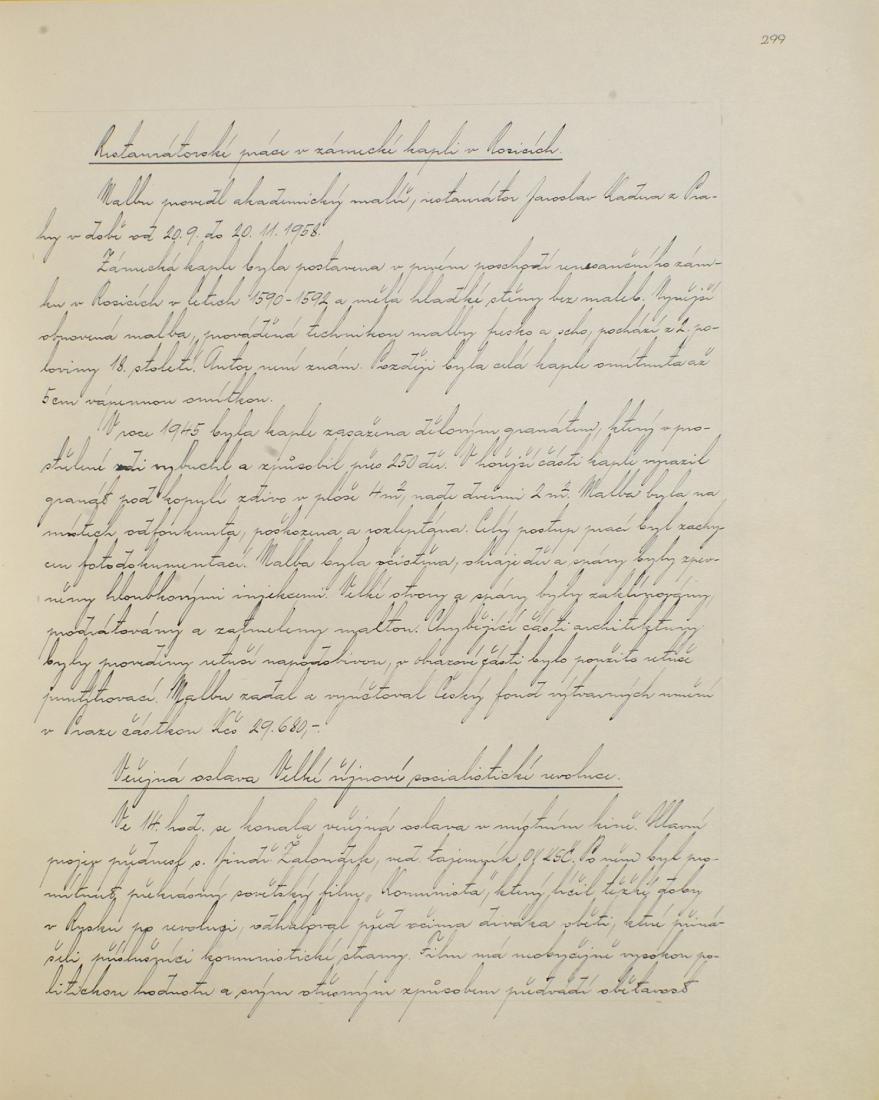 299
Restaurátorské práce v zámecké kapli v Rosicích.
Malbu provedl akademický malíř, restaurátor Jaroslav Kadera z Pra-
hy v době od 20. 9. do 20. 11. 1958.
Zámecká kaple byla postavena v prvém poschodí renesančního zám-
ku v Rosicích v letech 1590-1592 a měla hladké stěny bez maleb. Nynější
obnovená malba, prováděná technikou malby fresko a secho, pochází z 2. po-
loviny 18. století. Autor není znám. Později byla celá kaple omítnuta až
5cm vápennou omítkou.
V roce 1945 byla kaple zasažena dělovým granátem, který v pro-
střelené zdi vybuchl a způsobil přes 250 děr. V hořejší části kaple vyrazil
granát pod kopulí zdivo v ploše 4 m², nade dveřmi 2 m². Malba byla na
místech odfouknuta, poškozena a rozleptána. Celý postup prací byl zachy-
cen fotodokumentací. Malba byla očištěna, okraje děr a spáry byly zpev-
něny hloubkovými injekcemi. Velké otvory a spáry byly
prodrátovány a zatmeleny maltou. Chybějící části architektury
byly provedeny retuší napodobivou, v obrazové části bylo použito retuše
Malbu zadal a vyúčtoval Český fond výtvarných umění
v Praze částkou Kčs 29.680,-.
Veřejná oslava Velké říjnové socialistické revoluce.
Ve 14. hod. se konala veřejná oslava v místním kině. Hlavní
projev přednesl s. Jindř. Žaloudek, ved. tajemník OV KSČ. Po něm byl pro-
mítnut překrásný sovětský film „Komunista", který líčil těžké doby
v Rusku po revoluci, odhaloval před očima diváka oběti, které přiná-
šeli příslušníci komunistické strany. Film má neobyčejně vysokou po-
litickou hodnotu a svým otřesným způsobem předvádí obětavost